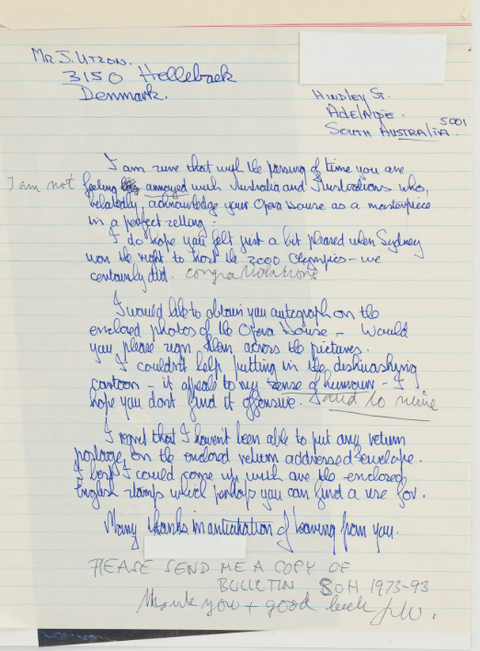 Mr J. Utzon.
3150 Hellebaek
Denmark.
Hindley St.
Adelaide. 5001
South Australia.
I am sure that with the passing of time you are
I am not
feeling annoyed with Australia and Australians who,
belatedly, acknowledge your Opera House as a masterpiece
in a perfect setting.
I do hope you felt just a bit pleased when Sydney
won the right to host the 2000 Olympics - we
certainly did. congratulations
I would like to obtain you autograph on the
enclosed photos of the Opera House - Would
you please sign them across the pictures.
I couldn't help putting in the dishwashing
cartoon - it appeals to my sense of humour - I
hope you dont find it offensive. and to mine
I regret that I haven't been able to put any return
postage on the enclosed return addressed envelope.
I could come up with are the enclosed
English stamps which perhaps you can find a use for.
Many thanks in anticipation of hearing from you.
PLEASE SEND ME A COPY OF
BULLETIN SOH 1973-93
Thank you + good luck